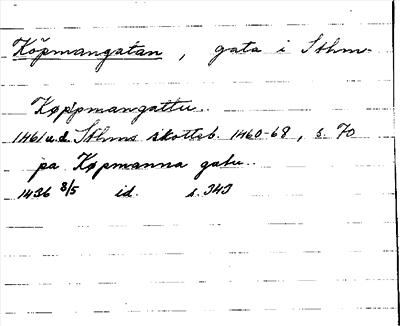 Köpmangatan, gata i Sthm
Køppmangattu..
1461 u.d. Sthms skotteb. 1460-68, s. 70
pa Køpmanna gatu..
1436 8/5 id. s. 343